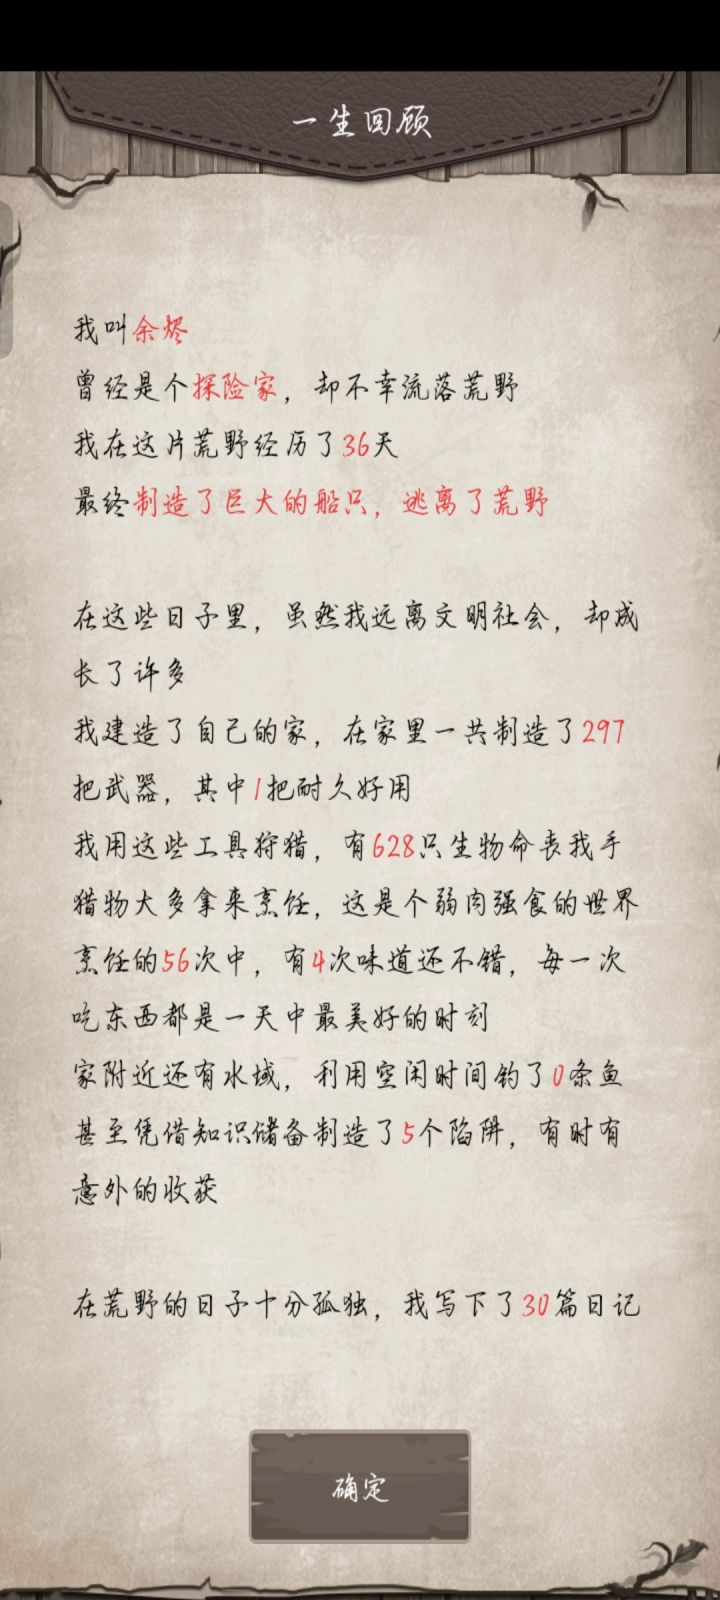 一生回顾
我叫余烬
曾经是个探险家，却不幸流落荒野
我在这片荒野经历了36天
最终制造了巨大的船只，逃离了荒野
在这些日子里，虽然我远离文明社会，却成
长了许多
我建造了自己的家，在家里一共制造了297
把武器，其中1把耐久好用
我用这些工具狩猎，有628只生物命丧我手
猎物大多拿来烹饪，这是个弱肉强食的世界
烹饪的56次中，有4次味道还不错，每一次
吃东西都是一天中最美好的时刻
家附近还有水域，利用空闲时间钓了0条鱼
甚至凭借知识储备制造了5个陷阱，有时有
意外的收获
在荒野的日子十分孤独，我写下了30篇日记
确定